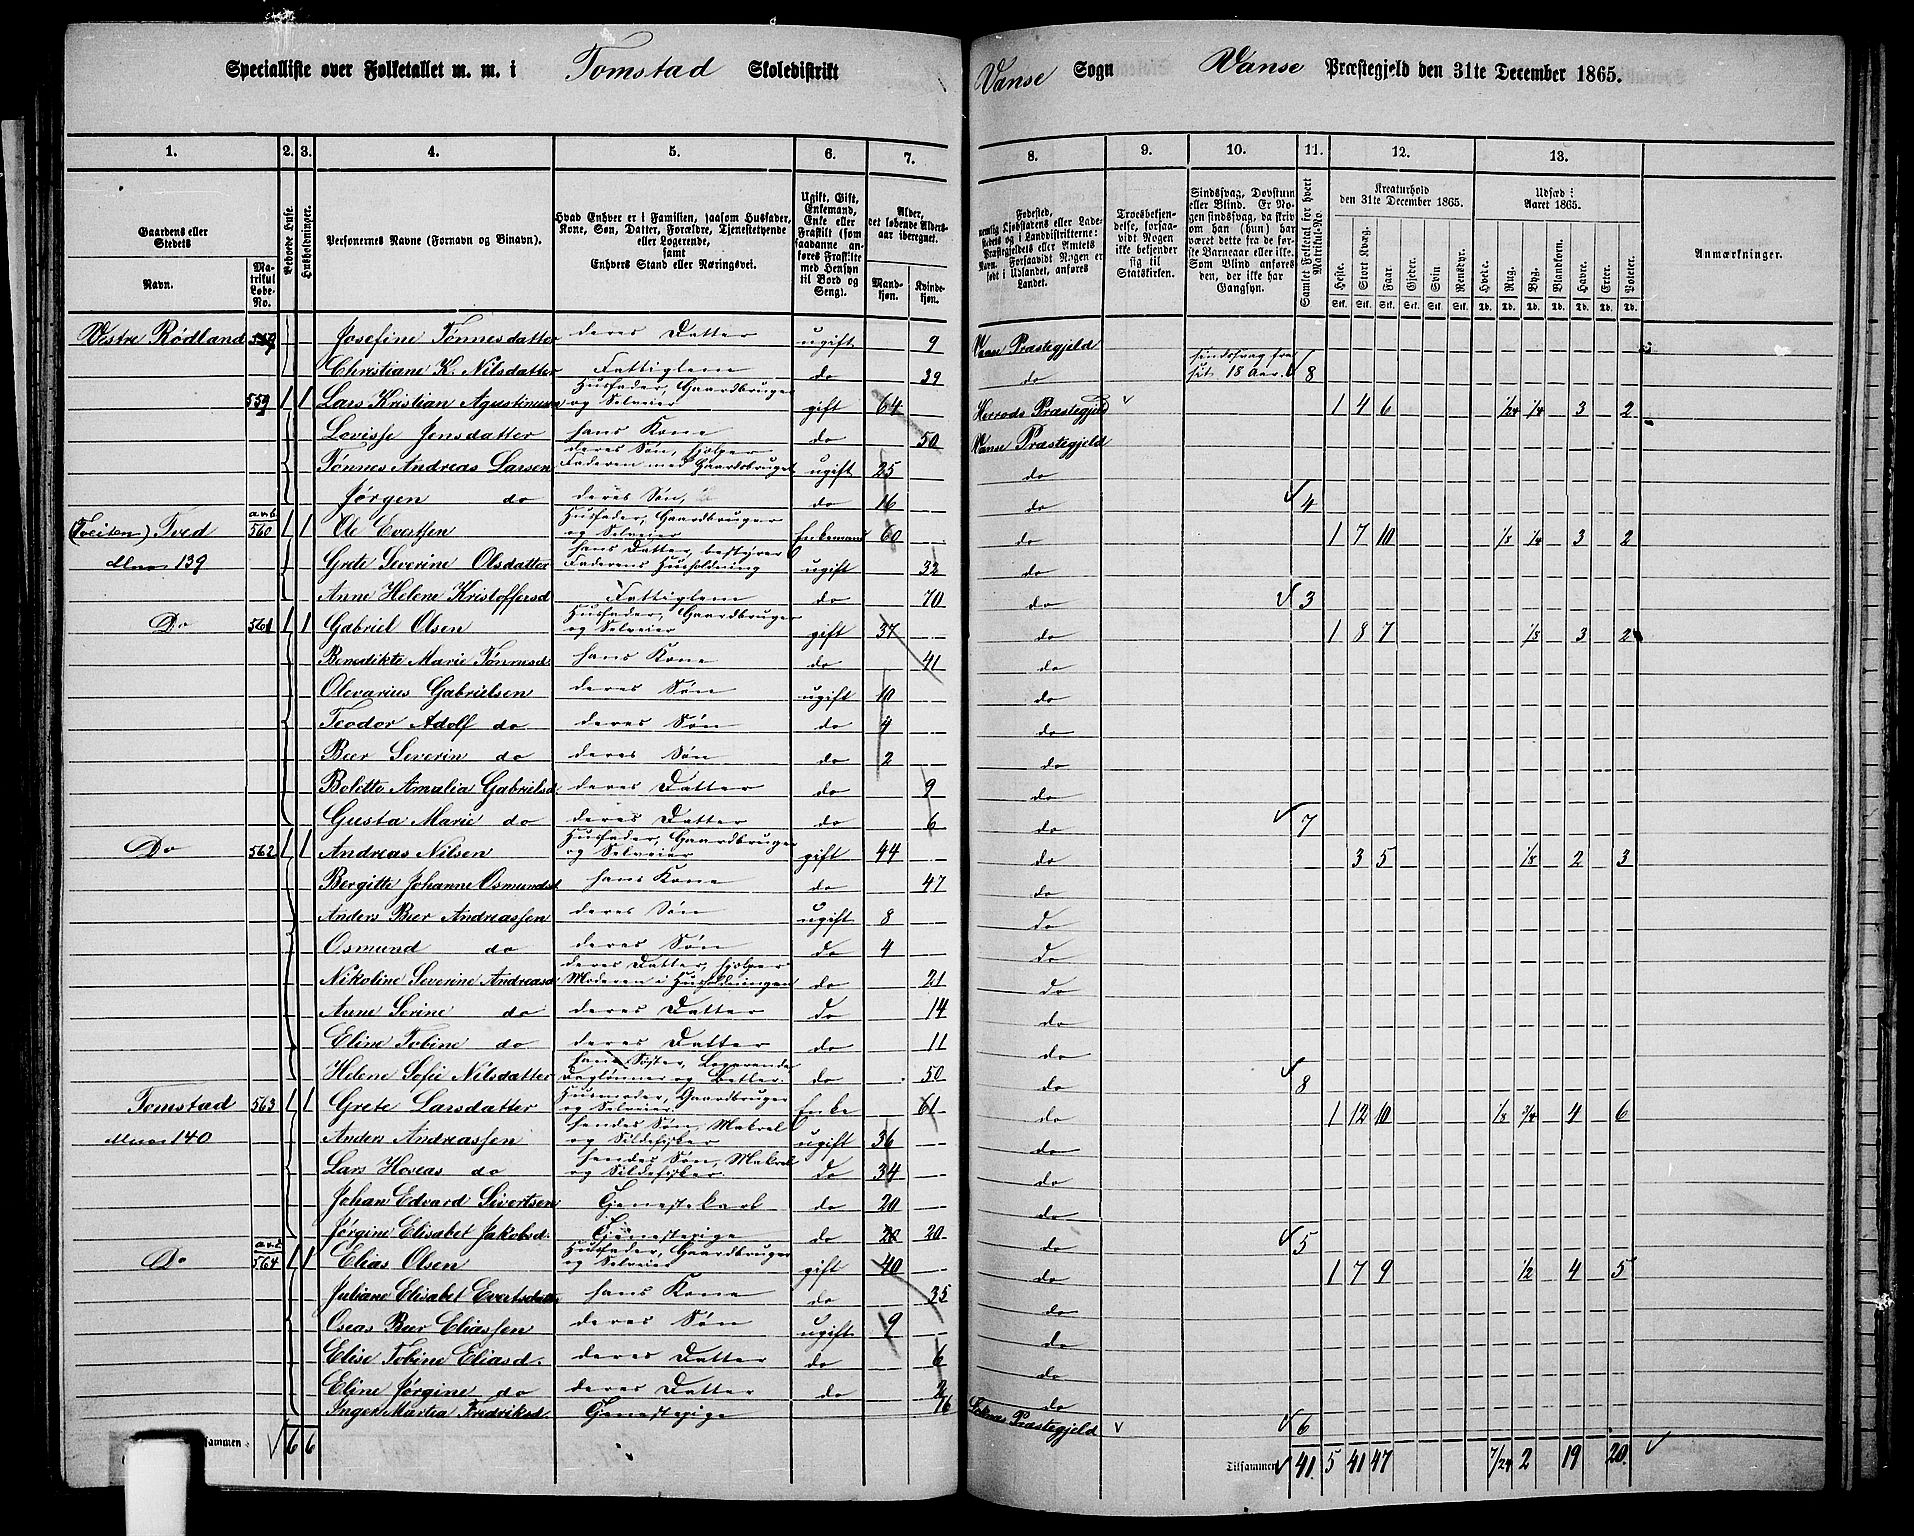 Specialliste over Folketallet m. m. i Tomstad Skoledistrikt Vanse Sogn Vanse Præstegjeld den 31te December 1865.
1. 2. 3. 4. 5. 6. 7. 8. 9. 10. 11. 12. 13.
Gaardens eller Stedets
Navn.
Matrikul Løbe-No.
Beboede Huse.
Husholdninger.
Personernes Navne (Fornavn og Binavn).
Hvad Enhver er i Familien, saasom Husfader, Kone, Søn, Datter, Forældre, Tjenestetyende eller Logerende, samt Enhvers Stand eller Næringsvei.
Ugift, Gift, Enkemand, Enke eller Fraskilt (som saadanne anføres Fraskilte med Hensyn til Bord og Seng).
Alder, det løbende Alders-aar iberegnet.
Mandkjøn. Kvindekjøn.
Fødested, nemlig Kjøbstadens eller Ladestedets og i Landdistrikterne: Præstegjeldets eller Amtets Navn. Forsaavidt Nogen er født i Udlandet, anføres Landet.
Troesbekjendelse, forsaavidt Nogen ikke bekjender sig til Statskirken.
Sindssvag, Døvstum eller Blind. Er Nogen sindssvag, da skriv om han (hun) har været dette fra de første Barneaar eller ikke. Som Blind anføres den, der ikke har Gangsyn.
Samlet Folketal for hvert Matrikul-No.
Kreaturhold den 31te December 1865.
Heste. Stort Kvæg. Faar. Gjeder. Svin. Rensdyr.
Udsæd i Aaret 1865.
Hvede. Rug. Byg. Blandkorn. Havre. Erter. Poteter.
Anmærkninger.
Vestre Rødland Josefine Tønnesdatter deres Datter ugift 9 Vanse Præstegjeld
Christiane K. Nilsdatter Fattiglem do 39 do sindssvag fra sit 18 Aar. 8
559 1 1 Lars Kristian Agustinusen Husfader, Gaardbruger og Selveier gift 64 Herrads Præstegjeld 1 4 6 1/24 1/4 3 2
Lovisse Jensdatter hans Kone do 50 Vanse Præstegjeld
Tønnes Andreas Larsen deres Søn, hjelper Faderen med Gaardsbruget ugift 25 do
Jørgen do deres Søn, do 16 do 4
(Tveiten) Tved a+b 560 1 1 Ole Evertsen Husfader, Gaardbruger og Selveier Enkemand 60 do 1 7 10 1/8 1/4 3 2
Mno 139 Grete Severine Olsdatter hans Datter, bestyrer Faderens Husholdning ugift 32 do
Anne Helene Kristoffersd Fattiglem do 70 do 3
Do 561 1 1 Gabriel Olsen Husfader, Gaardbruger og Selveier gift 37 do 1 8 7 1/8 3 2
Benedikte Marie Tønnesd. hans Kone do 41 do
Olevarius Gabrielsen deres Søn ugift 10 do
Teodor Adolf do deres Søn do 4 do
Beer Severin do deres Søn do 2 do
Bolette Amalia Gabrielsd. deres Datter do 9 do
Gusta Marie do deres Datter do 6 do 7
Do 562 1 1 Andreas Nilsen Husfader, Gaardbruger og Selveier gift 44 do 3 5 1/8 2 3
Bergitte Johanne Osmundsd. hans Kone do 47 do
Anders Beer Andreassen deres Søn ugift 8 do
Osmund do deres Søn do 4 do
Nikoline Severine Andreasd. deres Datter, hjelper Moderen i Husholdningen do 21 do
Anne Serine do deres Datter do 14 do
Eline Tobine do deres Datter do 11 do
Helene Sofie Nilsdatter hans Søster, Logerende Daglønner og Betler. do 50 do 8
Tomstad 563 1 1 Grete Larsdatter Husmoder, Gaardbruger og Selveier Enke 61 do 1 12 10 1/8 3/4 4 6
Mno 140 Anders Andreassen hendes Søn, Makrel og Sildefisker ugift 36 do
Lars Hoseas do hendes Søn, Makrel og Sildefisker do 34 do
Johan Edvard Sivertsen Tjenestekarl do 20 do
Jørgine Elisabet Jakobsd. Tjenestepige do 20 do 5
Do 564 1 1 Elias Olsen Husfader, Gaardbruger og Selveier gift 40 do 1 7 9 1/2 4 5
Juliane Elisabet Evertsdatter hans Kone do 35 do
Oseas Beer Eliassen deres Søn ugift 9 do
Elise Tobine Eliasd. deres Datter do 6 do
Eline Jørgine do deres Datter do 2 do
Inger Martea Fredriksd. Tjenestepige 16 Præstegjeld 6
Tilsammen 6 6 Tilsammen 41 5 41 47 7/24 2 19 20